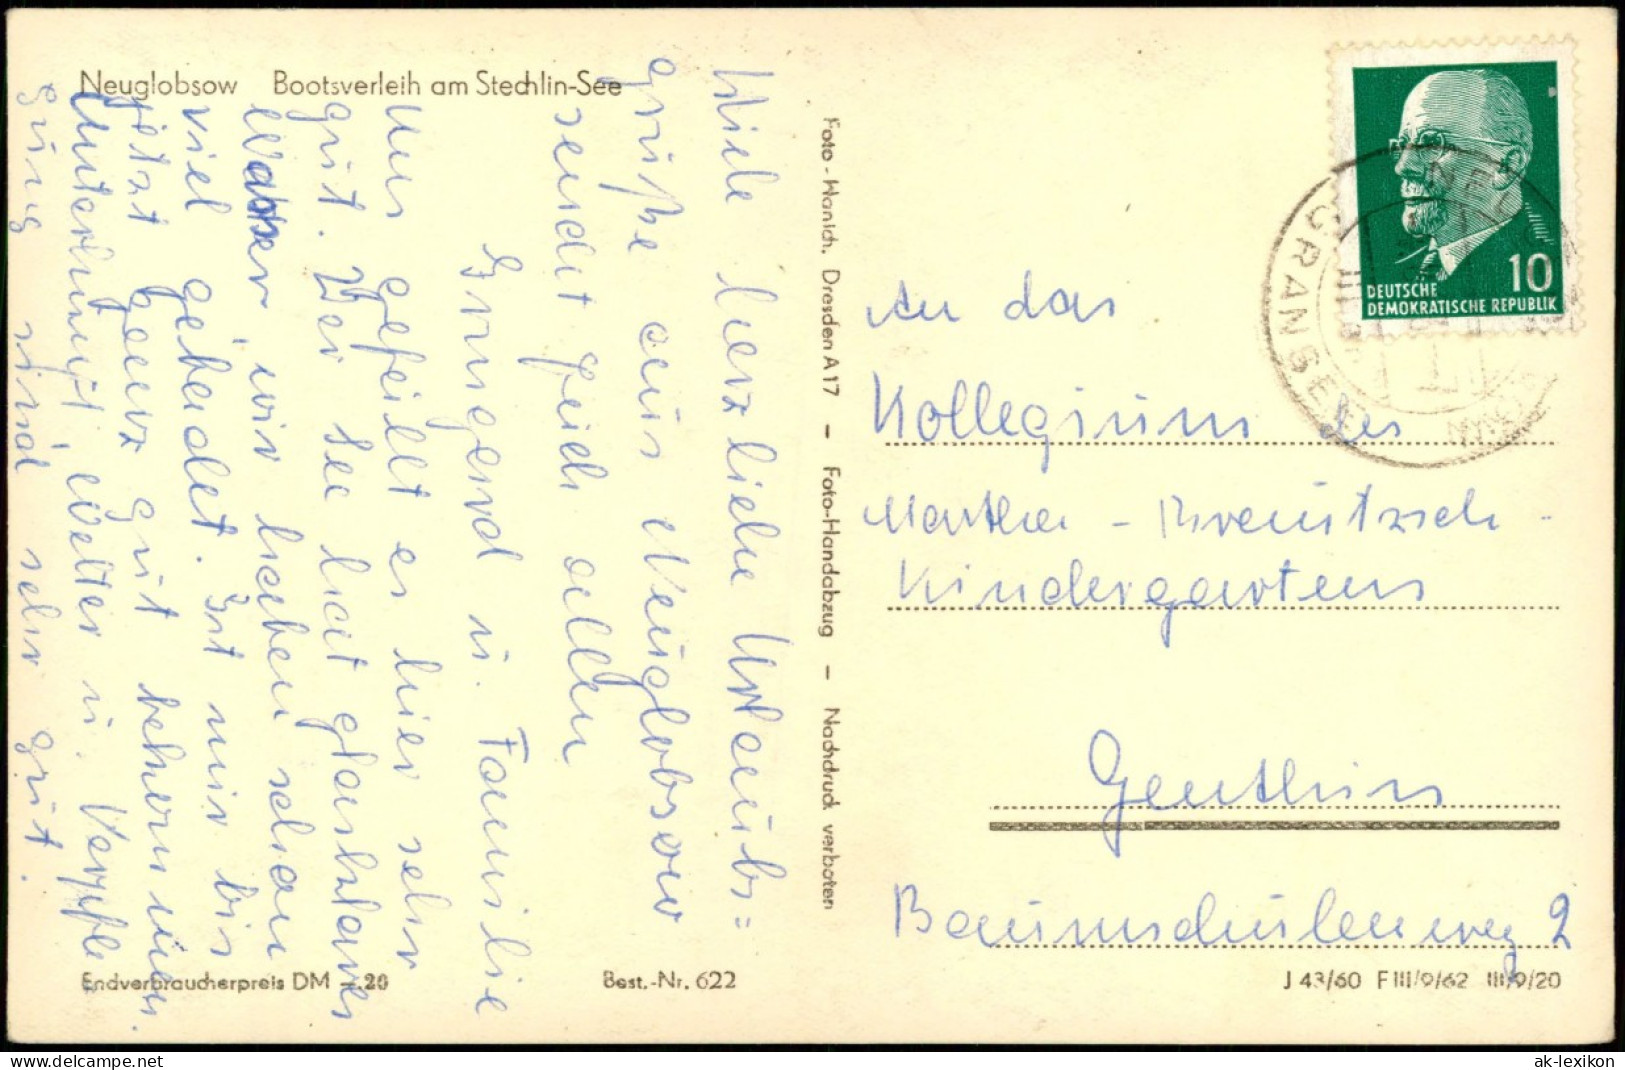 Neuglobsow Bootsverleih am Stechlin-See
Viele herzliche Urlaubs=
grüße aus Neuglobsow
sendet Euch allen
Irmgard u. Familie
Uns gefällt es hier sehr
gut. Der See hat glasklares
Wasser, wir haben schon
viel gebadet. Ist mir bis
jetzt ganz gut bekommen.
Unterkunft, Wetter u. Verpfle
gung sind sehr gut.
Foto-Hanich, Dresden A 17 – Foto-Handabzug – Nachdruck verboten
DEUTSCHE
DEMOKRATISCHE REPUBLIK
10
GRANSEE
An das
Kollegium des
Martha-Brautzsch-
Kindergartens
Genthin
Baumschulenweg 2
Endverbraucherpreis DM -.20
Best.-Nr. 622
J 43/60 F III/9/62 III/9/20
www.delcampe.net
ak-lexikon